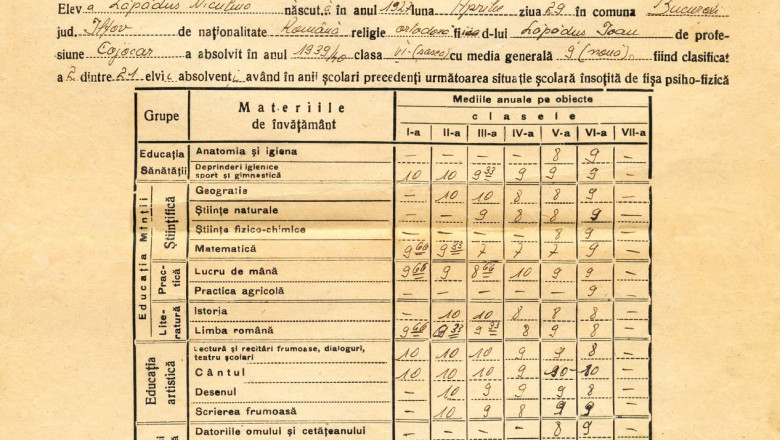 Elev a Lăpăduș Niculina născut ă în anul 1927 luna Aprilie ziua 29 în comuna București
jud. Ilfov de naționalitate Română religie ortodoxă fiica d-lui Lăpăduș Ioan de profe-
siune Cojocar a absolvit în anul 1939/40 clasa VI-(șasea) cu media generală 9 (nouă) fiind clasificat
a 2 dintre 21 elvi absolvenți având în anii școlari precedenți următoarea situație școlară însoțită de fișa psiho-fizică
Grupe Materiile de învățământ Mediile anuale pe obiecte
clasele
I-a II-a III-a IV-a V-a VI-a VII-a
Educația Sănătății
Anatomia și igiena — — — — 8 9 —
Deprinderi igienice sport și gimnestică 10 10 9 33 9 9 9 —
Educația Minții
Științifică
Geografie — 10 10 8 8 9 —
Științe naturale — — 9 8 8 9 —
Științe fizico-chimice — — — — 8 9 —
Matematică 9 66 9 33 7 7 7 9 —
Practică
Lucru de mână 9 66 9 8 66 10 9 9 —
Practica agricolă — — — — — 9 —
Literatură
Istoria — 10 10 8 8 8 —
Limba română 9 66 9 33 9 33 8 9 8 —
Educația artistică
Lectură și recitări frumoase, dialoguri, teatru școlari 10 10 10 9 9 8 —
Cântul 10 10 10 9 10 10 —
Desenul — 10 9 9 9 8 —
Scrierea frumoasă — 10 9 8 9 9 —
Datoriile omului și cetățeanului — — — — 8 9 —